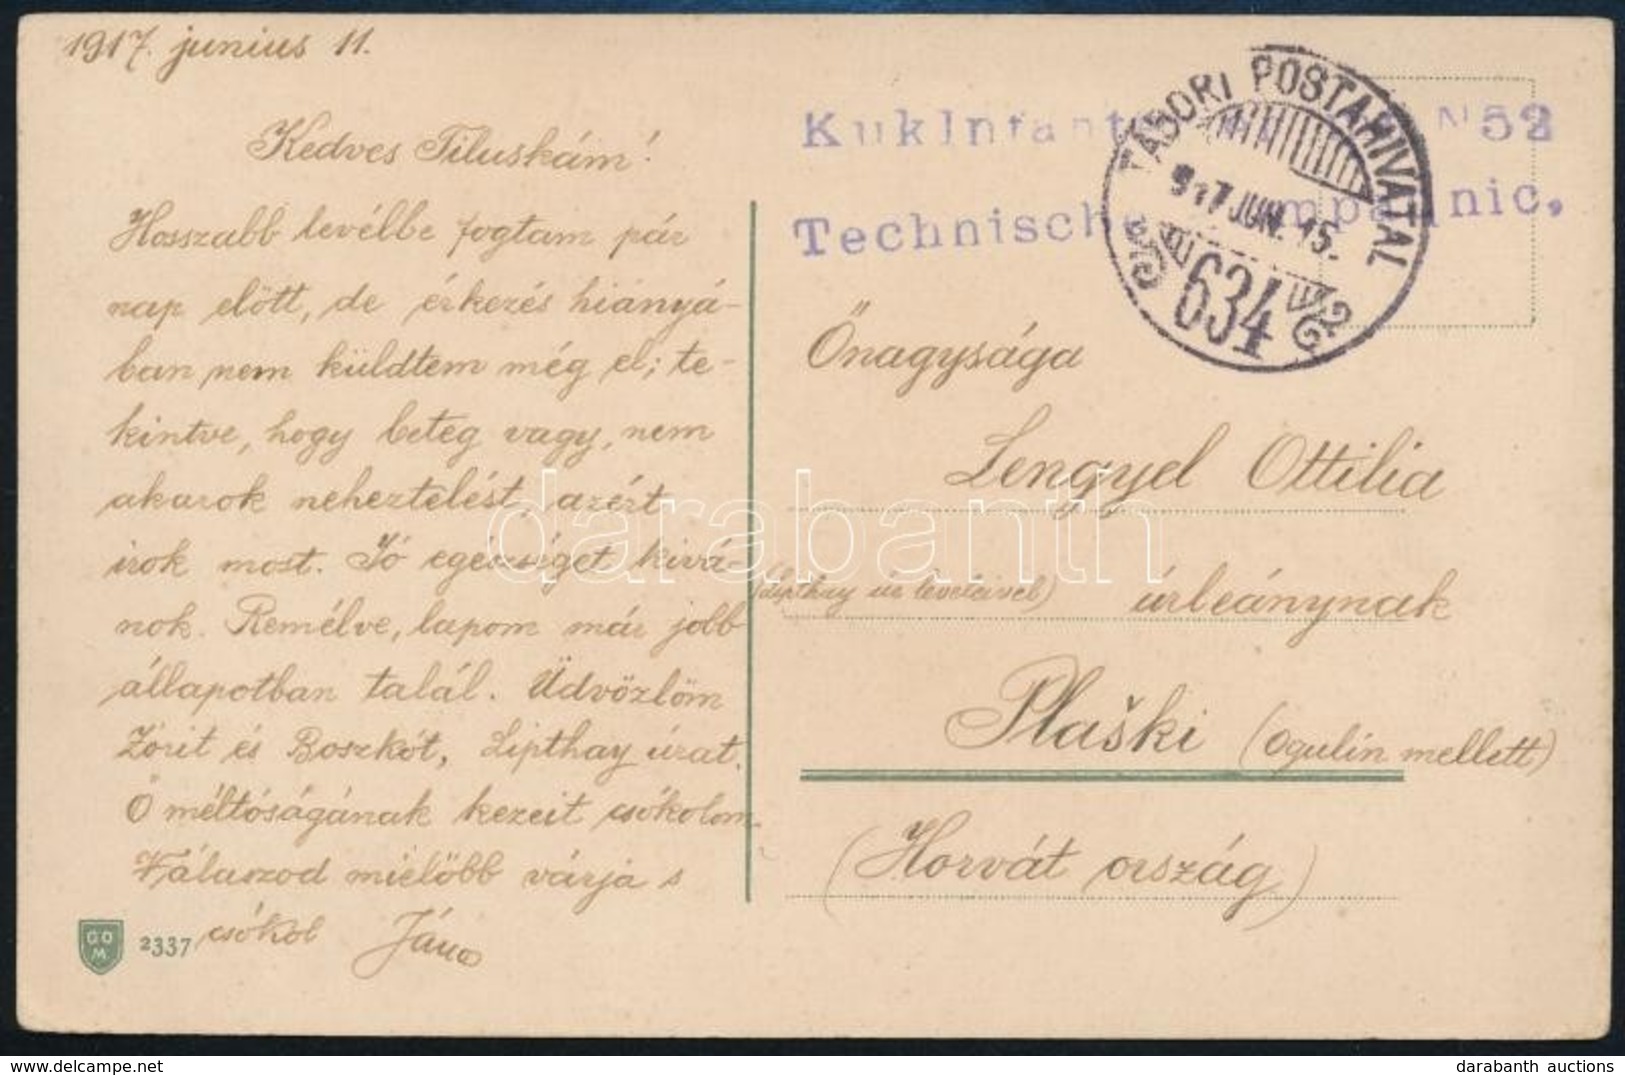 1917. junius 11.
Kedves Tiluskám!
Hosszabb levélbe fogtam pár
nap elött, de érkezés hiányá-
ban nem küldtem még el; te-
kintve, hogy beteg vagy, nem
akarok neheztelést, azért
irok most. Jó egészséget kivá-
nok. Remélve, lapom már jobb
állapotban talál. Üdvözlöm
Zórit és Boszkót, Lipthay úrat.
Ő méltóságának kezeit csókolom.
Válaszod mielöbb várja s
csókol János
GO
M
2337
N 52
Technische
TÁBORI POSTAHIVATAL
917 JUN. 15.
634
Őnagysága
Lengyel Ottilia
(Lipthay úr leveleivel) úrleánynak
Plaški (Ogulin mellett)
(Horvát ország)
darabanth
darabanth auctions